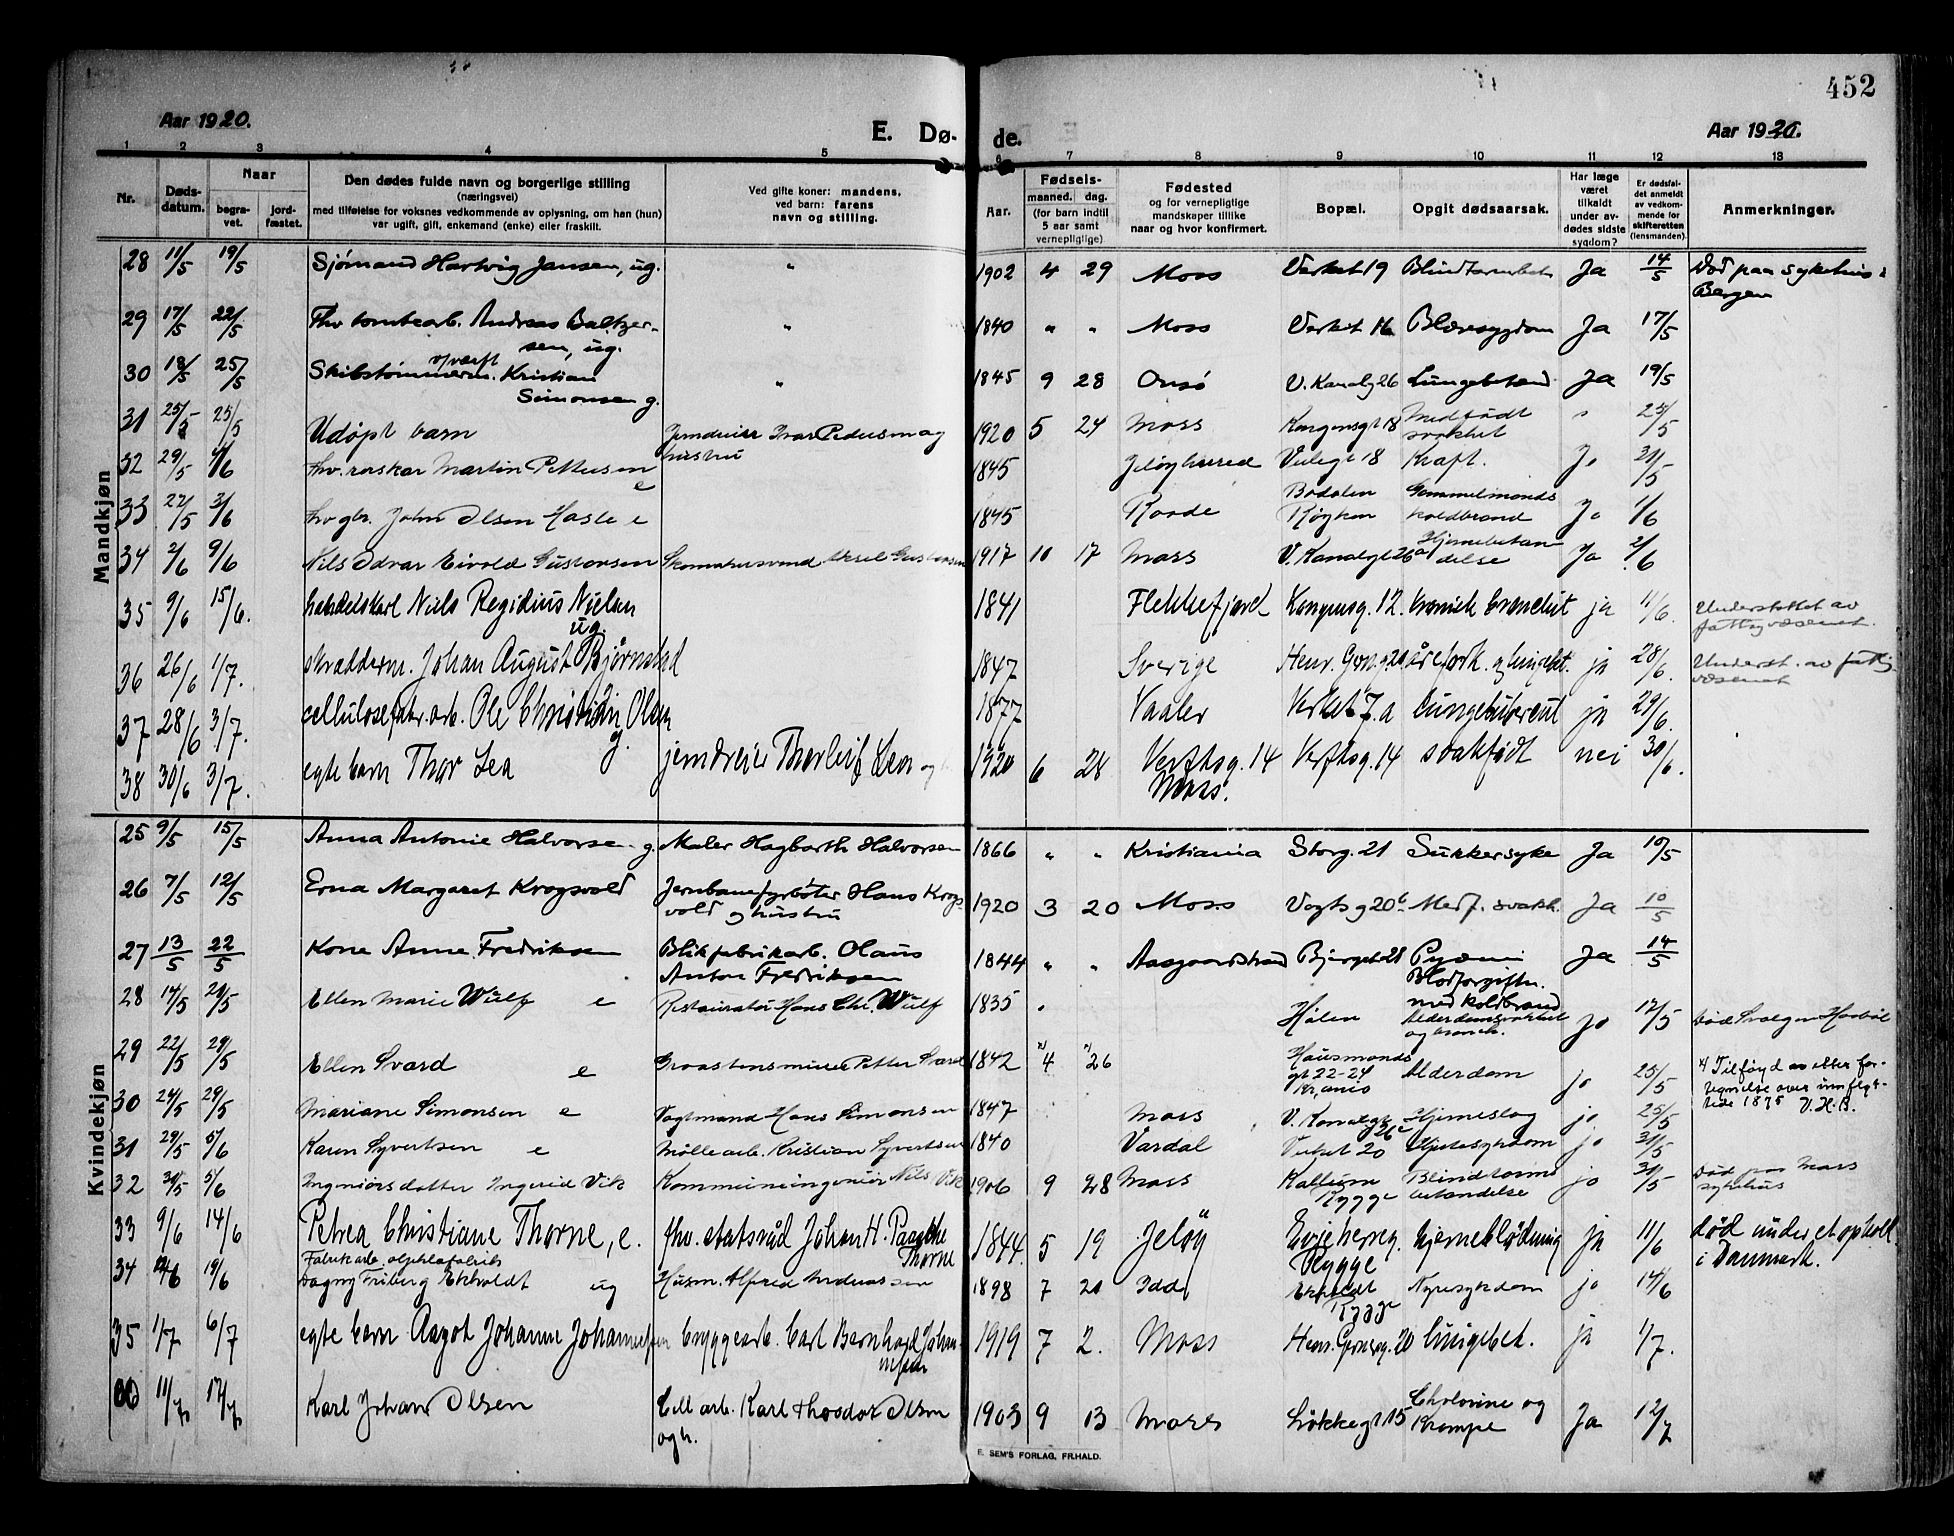 452
Aar 1920.
E. Dø-
de.
Aar 1920.
1 2 3 4 5 6 7 8 9 10 11 12 13
Nr.
Døds-
datum.
Naar
begra-
vet.
jord-
fæstet.
Den dødes fulde navn og borgerlige stilling
(næringsvei)
med tilføielse for voksnes vedkommende av oplysning, om han (hun)
var ugift, gift, enkemand (enke) eller fraskilt.
Ved gifte koner: mandens,
ved barn: farens
navn og stilling.
Aar.
Fødsels-
maaned. dag.
(for barn indtil
5 aar samt
vernepligtige)
Fødested
og for vernepligtige
mandskaper tillike
naar og hvor konfirmert.
Bopæl.
Opgit dødsaarsak.
Har læge
været
tilkaldt
under av-
dødes sidste
sygdom?
Er dødsfal-
det anmeldt
av vedkom-
mende for
skifteretten
(lensmanden).
Anmerkninger.
Mandkjøn
28 11/5 19/5 Sjømand Hartvig Jansen, ug. " 1902 4 29 Moss Verket 19 Ja 14/5 Død paa sykehus i
Bergen
29 17/5 22/5 Fhv. tomtearb. Andreas Baltzer-
sen, ug. " 1840 " " Moss Verket 16 Blæresygdom Ja 17/5
30 18/5 25/5 Skibstømmerm. Kristian
Simonsen g. " 1845 9 28 Onsø V. Kanalg 26 Lungebetænd Ja 19/5
31 25/5 25/5 Udøpt barn Jerndreier Ivar Pedersen og
hustru 1920 5 24 Moss Kongensgt 18 Medfødt
svakhet " 25/5
32 29/5 4/6 fhv. Martin Pettersen
e 1845 Jeløy herred 18 Kræft. Jo 31/5
33 27/5 3/6 John Olsen Hasle e 1845 Raade Bodalen
Røyken Gammelmands
koldbrand Jo 1/6
34 2/6 9/6 Nils Odvar Eivold Gustavsen Aksel Gustavsen 1917 10 17 Moss V. Kanalgt 26a Hjernebetæn
delse Ja 2/6
35 9/6 15/6. handelskarl Niels Regidius Nielsen
ug. 1841 Flekkefjord Kongensg. 12. kronisk bronchit ja 11/6 Understøttet av
fattigvæsenet.
36 26/6 1/7. skrædderm. Johan August Bjørnstad 1847 Sverige Henr. Gern.g 20 ja 28/6. Underst. av fattig
væsenet
37 28/6 3/7. cellulosefabr.arb. Ole Christian Olsen
g. 1877 Vaaler Verket 7.a Lungetuberkul ja 29/6.
38 30/6 3/7. egte barn Thor Lea jerndreier Thorleif Lea og 1920 6 28 Verftsg. 14
Moss. Verftsg. 14 svakfødt nei 30/6.
Kvindekjøn
25 9/5 15/5 Anna Antonie Halvorsen g. Maler Hagbarth Halvorsen 1866 " " Kristiania Storg. 21 Sukkersyke Ja 10/5
26 7/5 12/5 Erna Margaret Krogsvold Jernbanefyrbøter Hans Krogs-
vold og hustru 1920 3 20 Moss Vogtsg 20b Medf. svakh. Ja 10/5
27 13/5 22/5 Kone Anne Fredriksen Blikfabrikarb. Olaus
Anton Fredriksen 1844 " " Aasgaardstrand Bjergat 28 Pyæmi
Blodforgiftn.
med koldbrand Ja 14/5
28 14/5 29/5 Ellen Marie Wulf e Restauratør Hans Chr. Wulf 1835 " Hølen Alderdomssvakhet
og bronch. Jo 17/5
29 22/5 29/5 Ellen Svard e Graastensminer Petter Svard 1842 x) 4 x) 26 Hausmanns
gt 22-24
Kr.ania Alderdom jo 25/5 x) Tilføyd av efter for-
tegnelse over innflyt-
tede 1875 V.H.B.
30 24/5 29/5 Mariane Simonsen e Vogtmand Hans Simonsen 1847 Moss V. Kanalgt
26c Hjerneslag jo 25/5
31 29/5 5/6 Karen Syvertsen e Møllearb. Kristian Syvertsen 1840 Vardal Verket 20 Hjertesykdom jo 31/5
32 30/5 5/6 Ingeniørsdatter Ingerid Vik Kommuneingeniør Nils Vik 1906 9 28 Moss Kallum
Rygge Blindtarms
betændelse jo 31/5 Død paa Moss
sykehus
33 9/6 14/6 Petrea Christiane Thorne, e. fhv. statsråd Johan H. Paaske
Thorne 1844. 5 19 Jeløy
Rygge hjerneblødning ja 11/6 død under et ophold
i Danmark.
34 14/6 19/6 Fabrikarb.
Dagny Friberg Ekholdt ug Husm. Alfred Andreassen 1898 7 20 Idd Ekholdt
Rygge Nyresykdom jo 14/6
35 1/7 6/7 egte barn Aagot Johanne Johannessen bryggearb. Carl Bernhard Johan-
nessen 1919 7 2. Moss Henr. Gernersg. 20 lungebet. ja 1/7.
11/7 17/7 Karl Johan Olsen Cell arb. Karl Theodor Olsen
og h. 1903 9 13 Moss Løkkegt 15 Cholerine og
Krampe Ja 12/7
E. SEM'S FORLAG, FR.HALD.